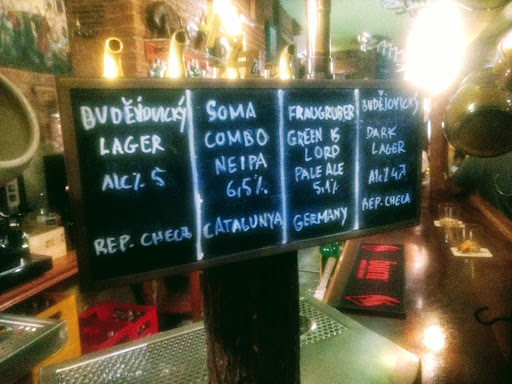 BUDĚJOVICKÝ
LAGER
ALC% 5
REP. CHECA
SOMA
COMBO
NEIPA
6,5%
CATALUNYA
FRAUGRUBER
GREEN IS
LORD
PALE ALE
5,1%
GERMANY
BUDĚJOVICKÝ
DARK
LAGER
ALC% 4,7
REP. CHECA